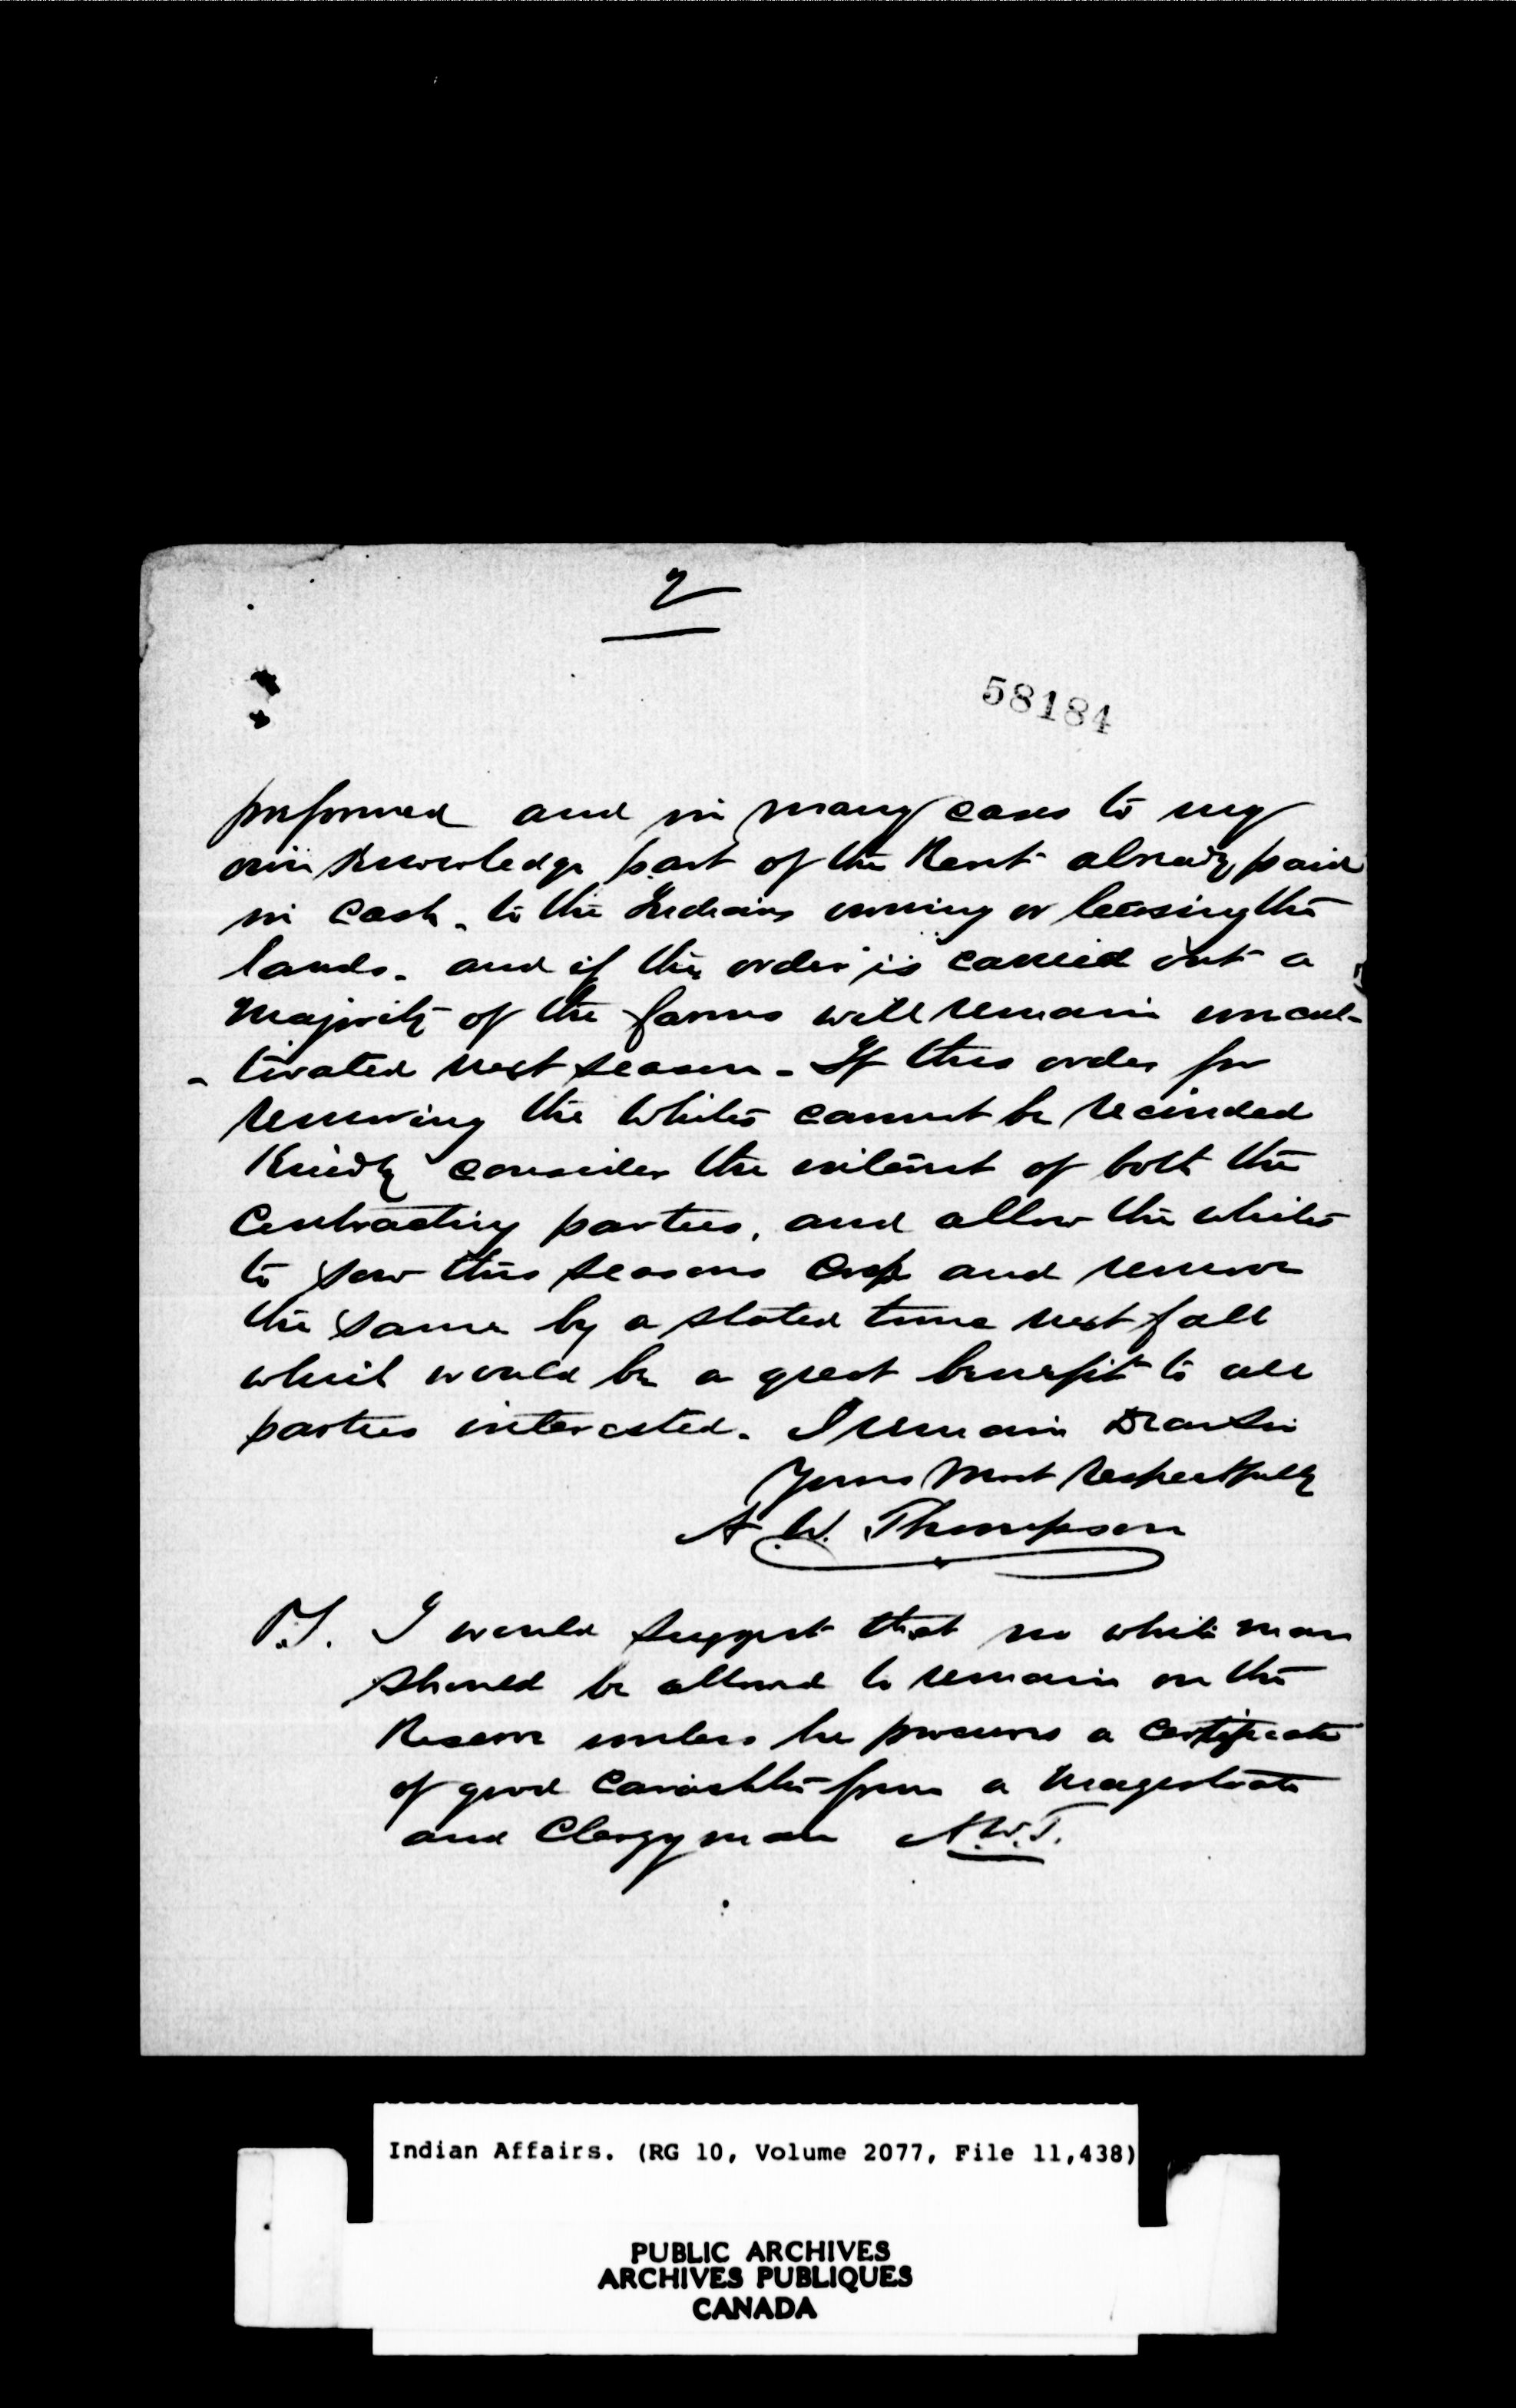 2
58184
preformed and in many cases to my
own knowledge part of the Rent already paid
in cash. to the Indians owning or leasing the
lands. and if the order is carried out a
majority of the farms will remain uncul-
-tivated next season. If this order for
removing the whites cannot be recinded
Kindly consider the interest of both the
Contracting parties, and allow the whites
to sow this seasons crop and remove
the same by a stated time next fall
which would be a great benefit to all
parties interested. I remain Dear Sir
Yours Most Respectfully
A.W. Thompson
P.S. I would suggest that no white man
should be allowed to remain on the
Reserve unless he procures a certificate
of good from a Magestrate
and Clergyman A.W.T.
Indian Affairs. (RG 10, Volume 2077, File 11,438)
PUBLIC ARCHIVES
ARCHIVES PUBLIQUES
CANADA